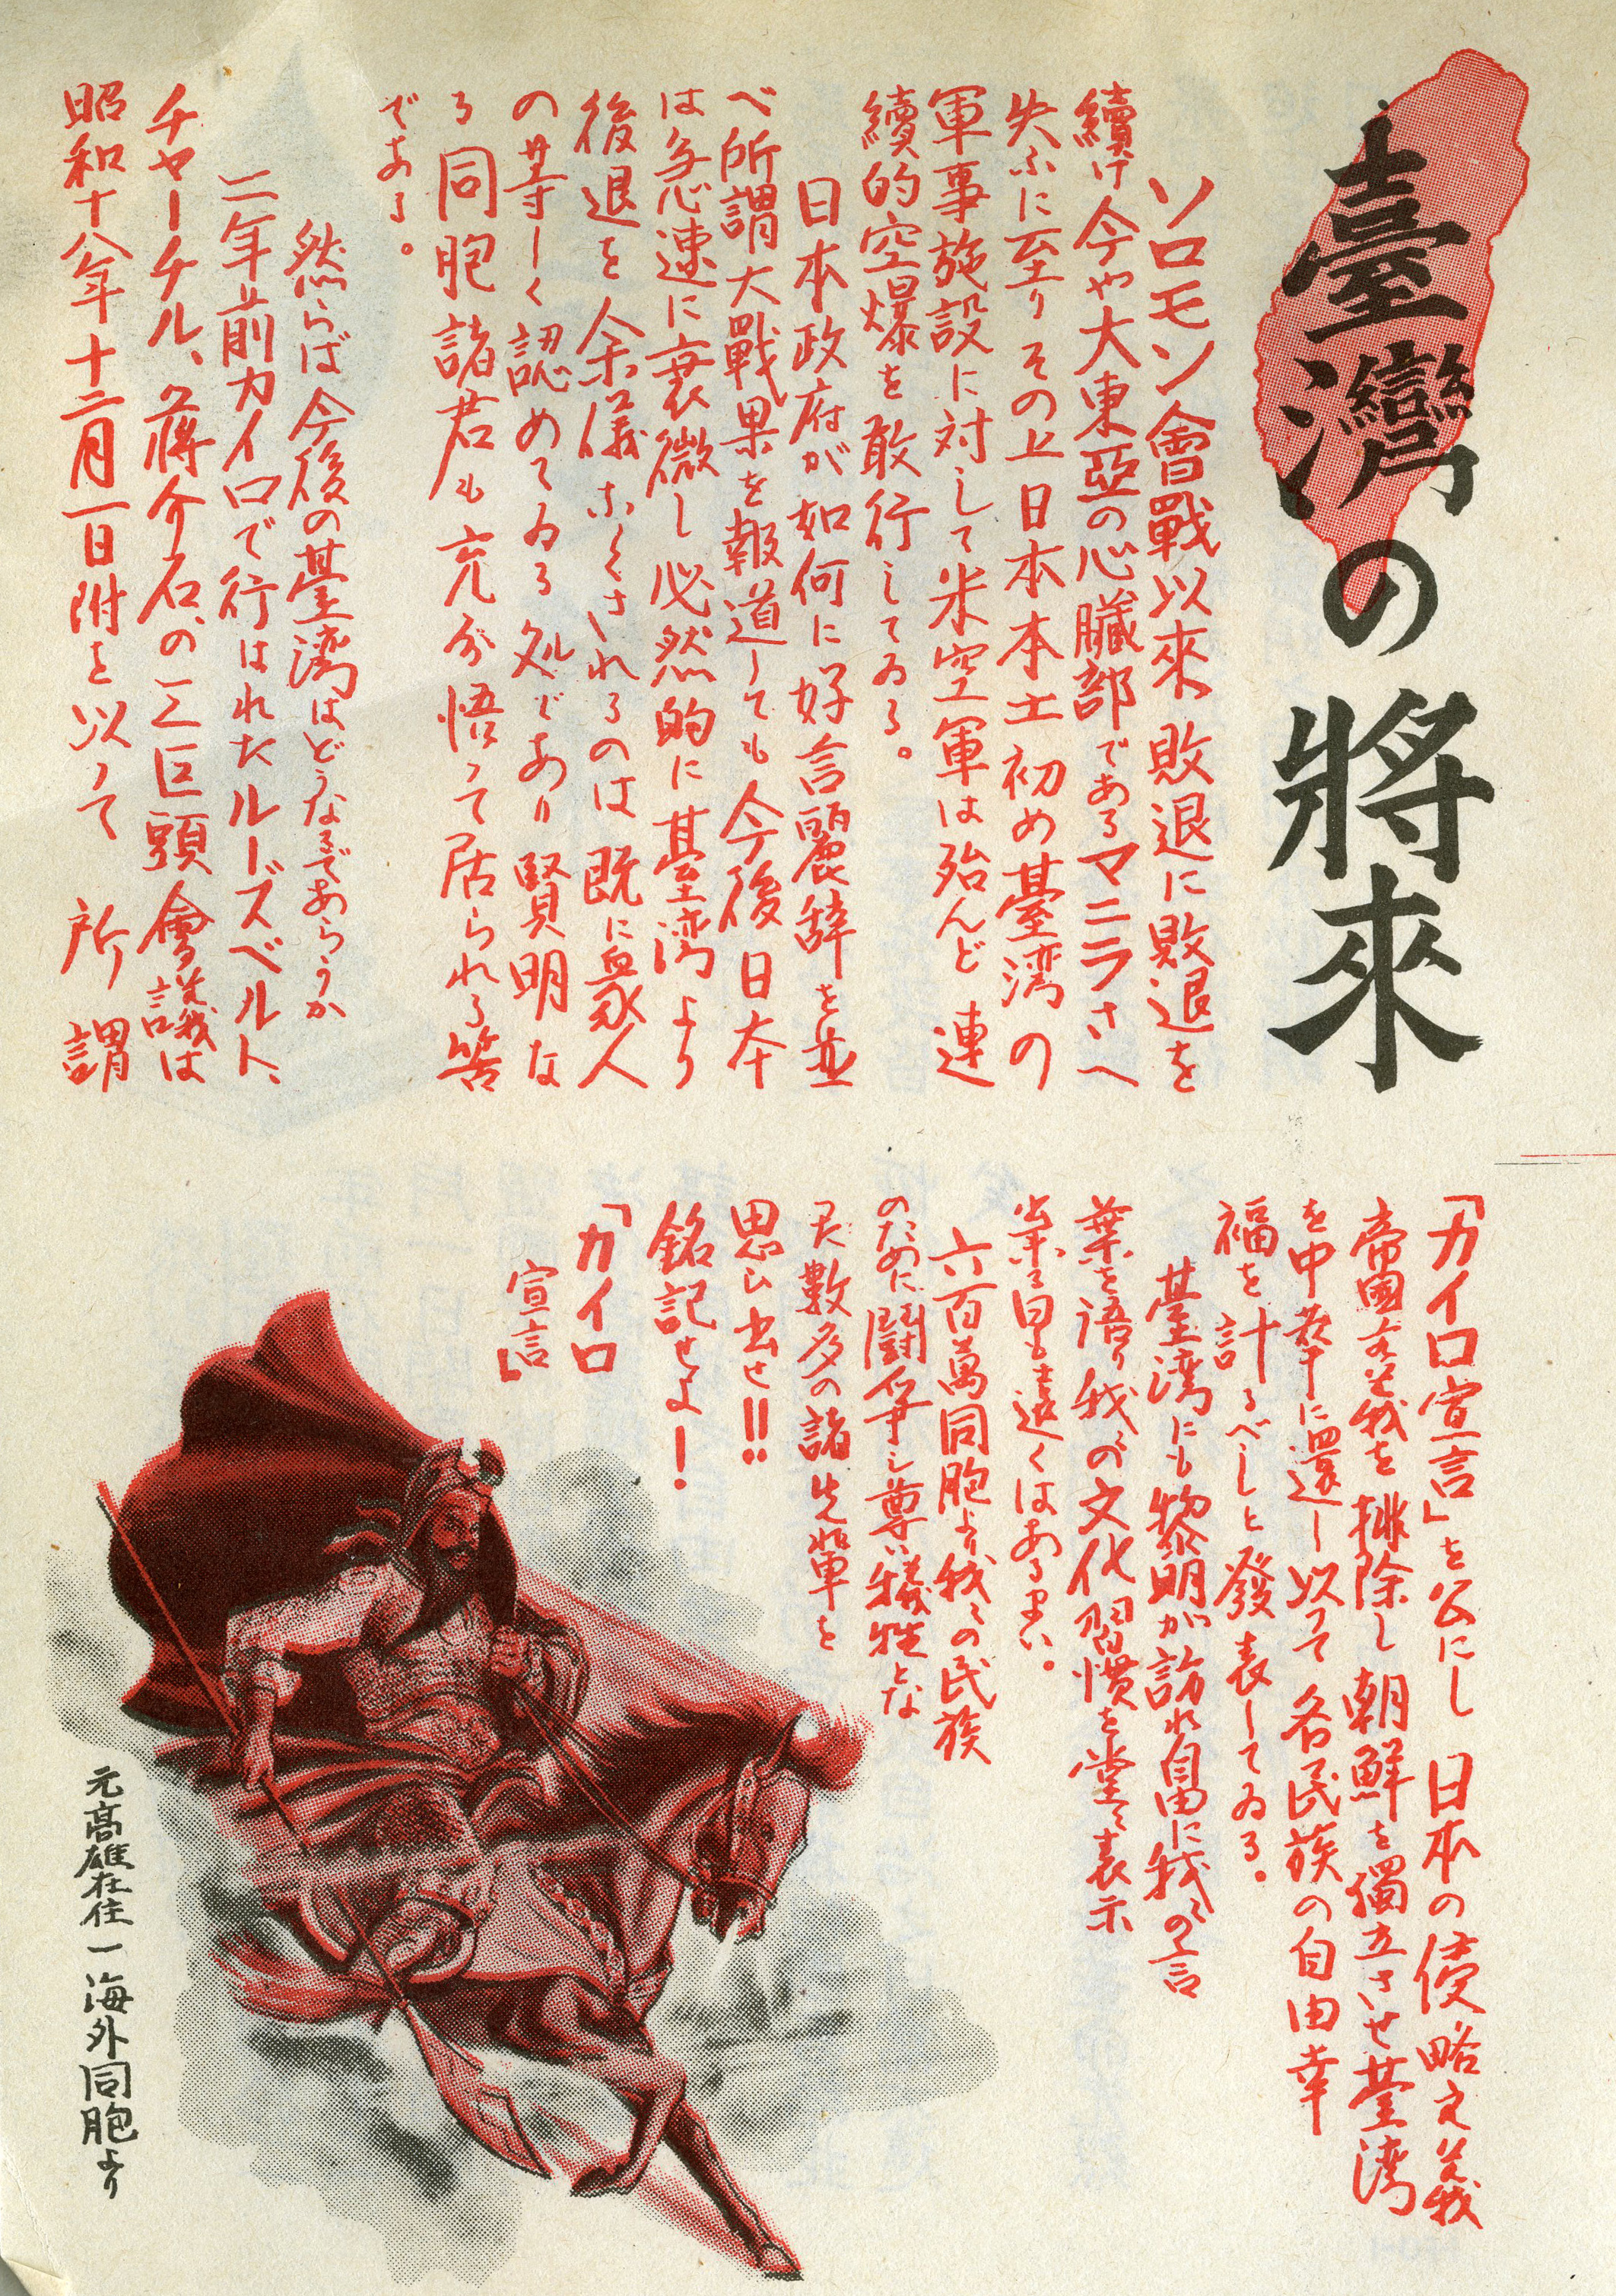 臺灣の將來
ソロモン會戰以來敗退に敗退を
續け今や大東亞の心臟部であるマニラさへ
失ふに至りその上日本本土初め臺湾の
軍事施設に対して米空軍は殆んど連
續的空爆を敢行してゐる。
日本政府が如何に好言麗辞を並
べ所謂大戰果を報道しても今後日本
は急速に衰微し必然的に臺湾より
後退を余儀なくされるのは既に衆人
の等しく認めてゐる処であり賢明な
る同胞諸君も充分悟って居られる筈
である。
然らば今後の臺湾はどうなるであらうか
二年前カイロで行はれたルーズベルト、
チャーチル、蔣介石、の三巨頭會議は
昭和十八年十二月一日附を以って所謂
「カイロ宣言」を公にし日本の侵略主義
帝國主義を排除し朝鮮を獨立させ臺湾
を中華に還し以って各民族の自由幸
福を計るべしと發表してゐる。
臺湾にも黎明が訪れ自由に我々の言
葉を語り我々が文化習慣を堂々表示
出来る日も遠くはあるまい。
六百萬同胞より我々の民族
のために鬪争し尊い犠牲とな
た數多の諸先輩を
思ひ出せ!!
銘記せよ!
「カイロ
宣言」
元高雄在住一海外同胞より